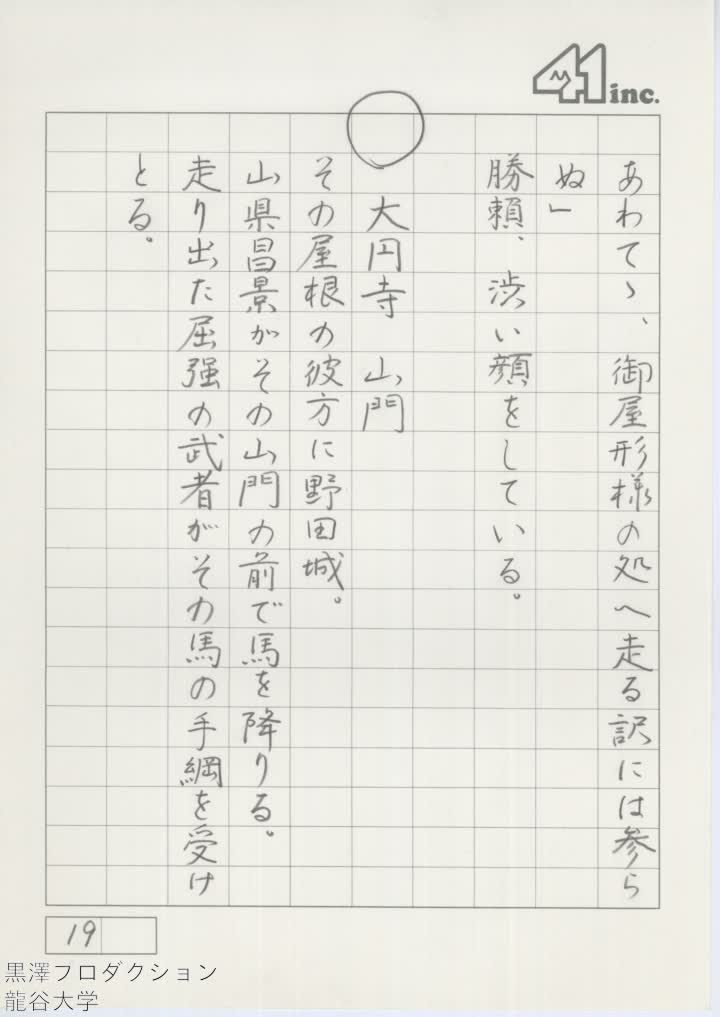 41 inc.
あわてゝ、御屋形様の処へ走る訳には参ら
ぬ」
勝頼、渋い顔をしている。
大円寺　山門
その屋根の彼方に野田城。
山県昌景がその山門の前で馬を降りる。
走り出た屈強の武者がその馬の手綱を受け
とる。
19
黒澤プロダクション
龍谷大学